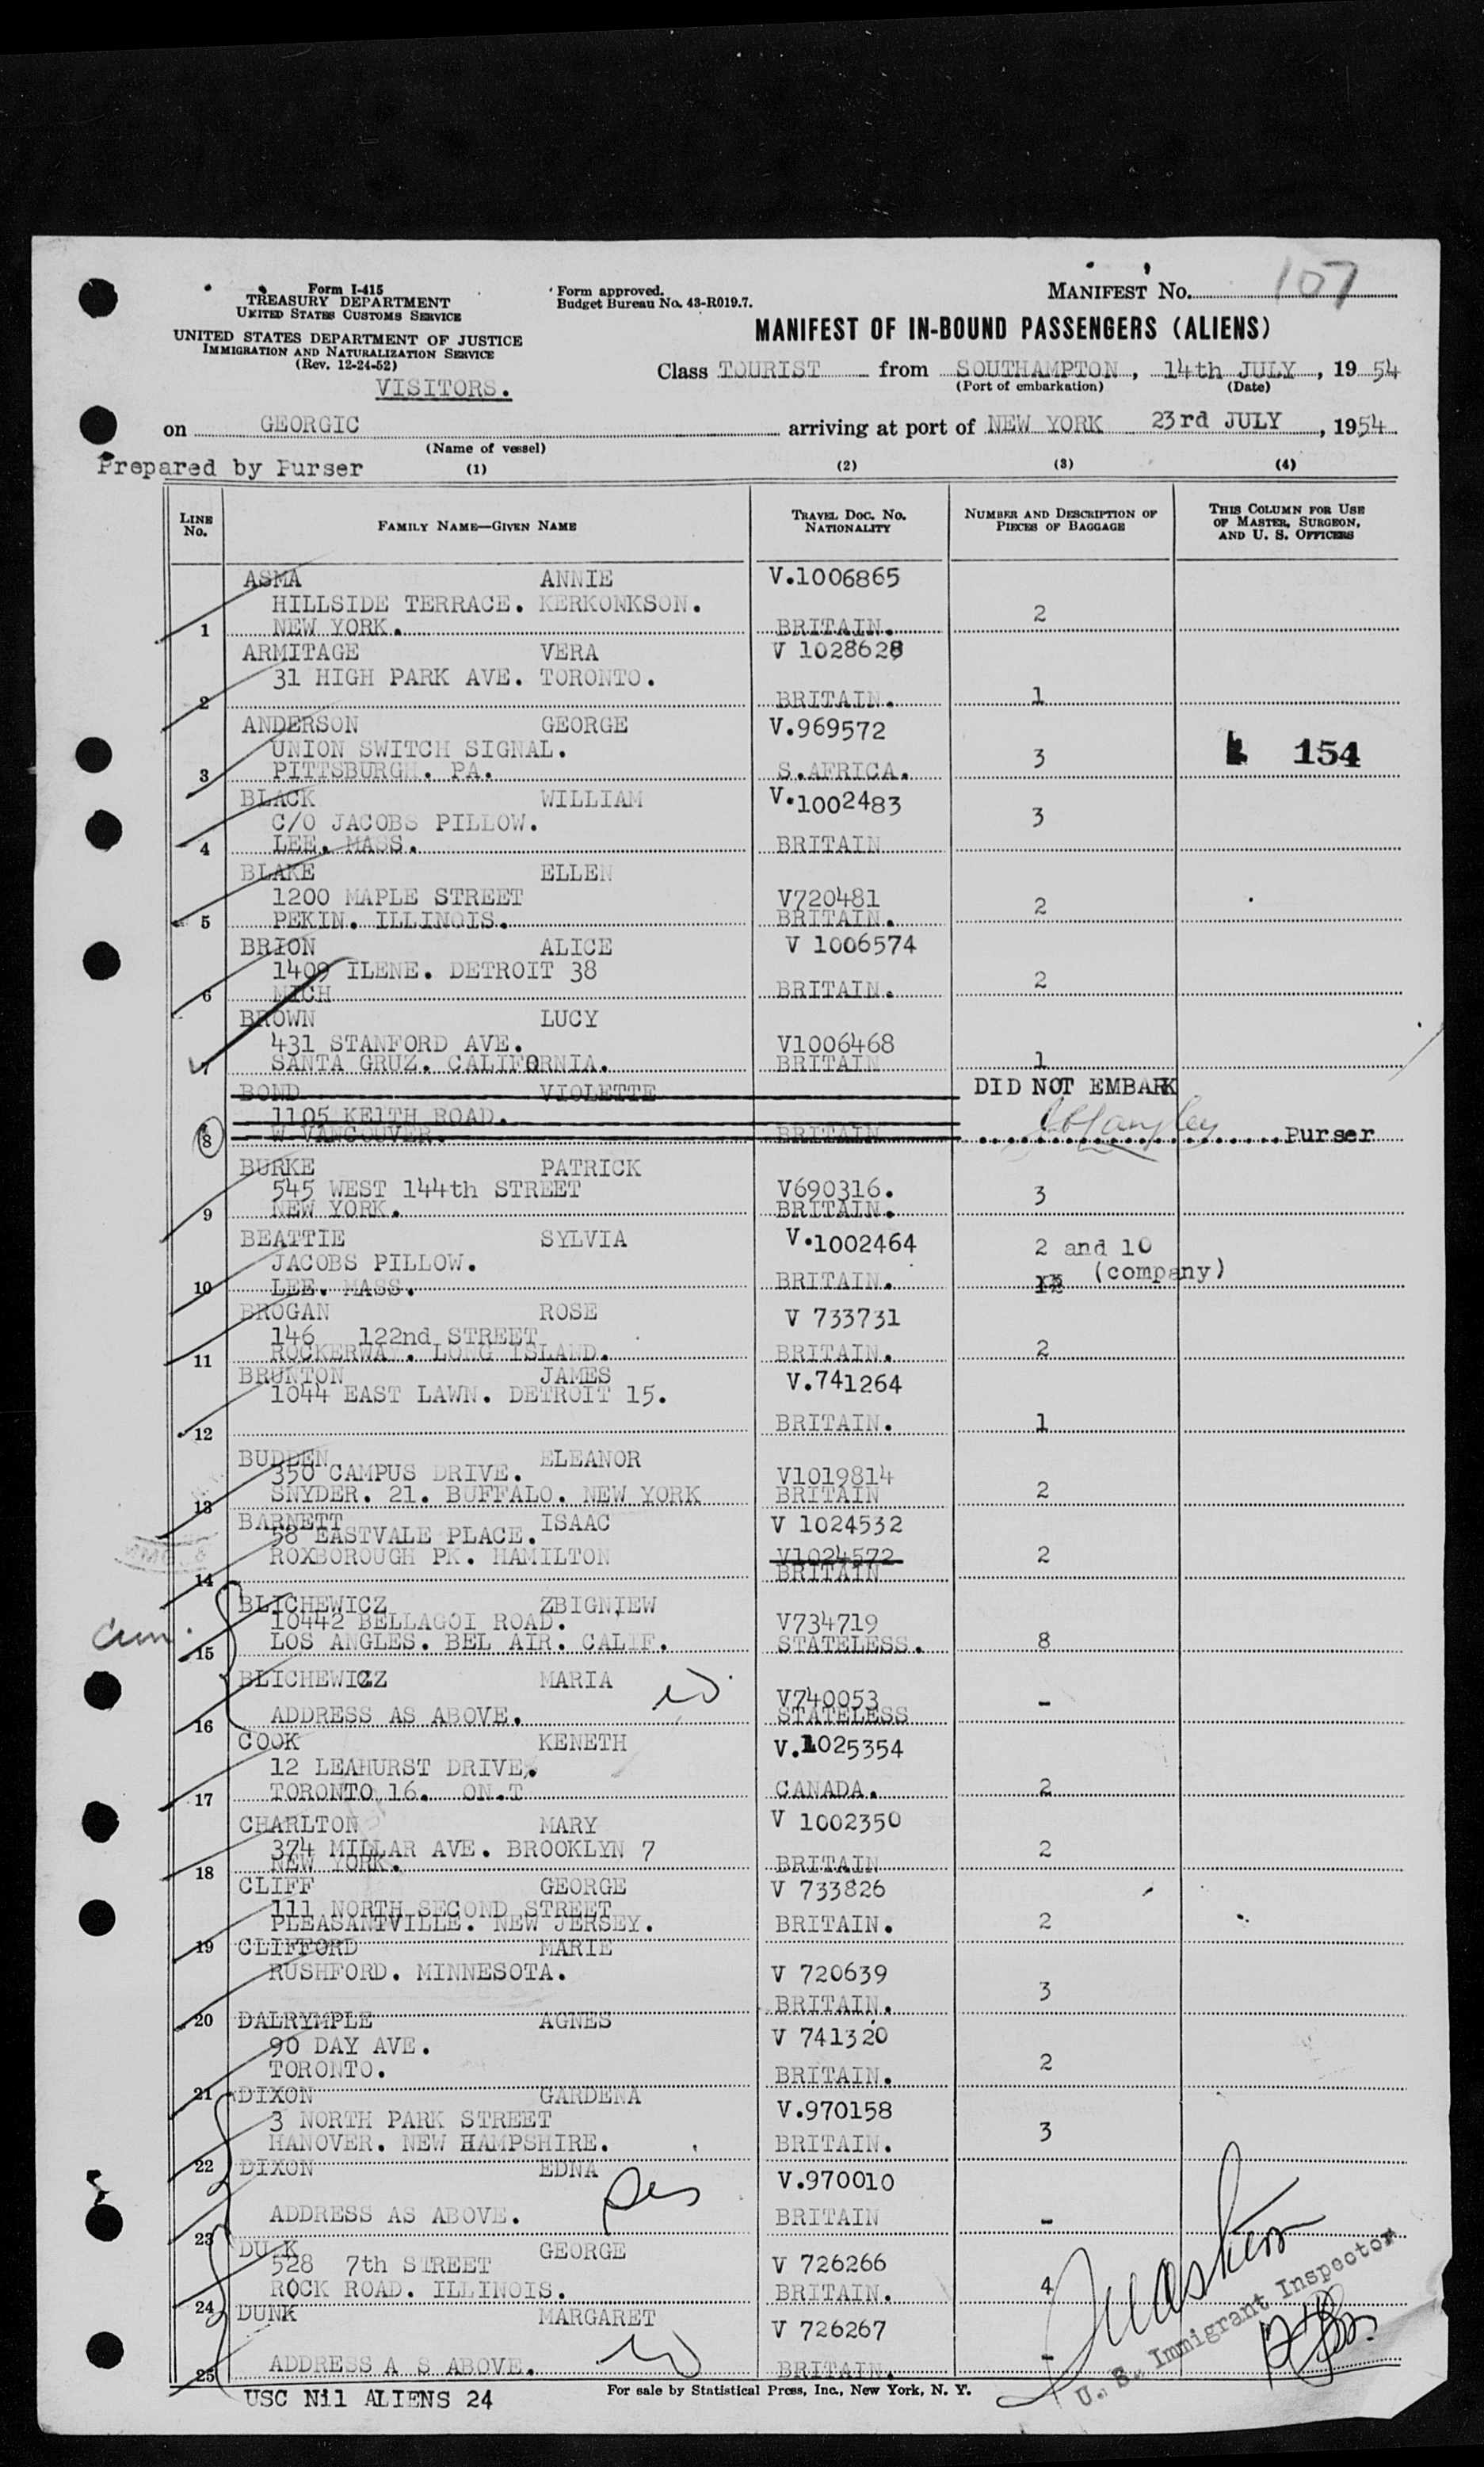 107
Form I-415
TREASURY DEPARTMENT
UNITED STATES CUSTOMS SERVICE
UNITED STATES DEPARTMENT OF JUSTICE
IMMIGRATION AND NATURALIZATION SERVICE
(Rev. 12-24-52)
VISITORS.
Form approved.
Budget Bureau No. 43-R019.7.
MANIFEST NO.
MANIFEST OF IN-BOUND PASSENGERS (ALIENS)
Class TOURIST from SOUTHAMPTON, 14th JULY, 19 54
(Port of embarkation) (Date)
on GEORGIC arriving at port of NEW YORK 23rd JULY, 1954
(Name of vessel)
Prepared by Purser (1) (2) (3) (4)
LINE NO. FAMILY NAME—GIVEN NAME TRAVEL DOC. NO. NATIONALITY NUMBER AND DESCRIPTION OF PIECES OF BAGGAGE THIS COLUMN FOR USE OF MASTER, SURGEON, AND U. S. OFFICERS
ASMA ANNIE V.1006865
HILLSIDE TERRACE. KERKONKSON. 2
1 NEW YORK. BRITAIN.
ARMITAGE VERA V 1028628
31 HIGH PARK AVE. TORONTO.
2 BRITAIN. 1
ANDERSON GEORGE V.969572
UNION SWITCH SIGNAL. 3 154
3 PITTSBURGH. PA. S.AFRICA.
BLACK WILLIAM V.1002483
C/O JACOBS PILLOW. 3
4 LEE. MASS. BRITAIN
BLAKE ELLEN
1200 MAPLE STREET V720481 2
5 PEKIN. ILLINOIS. BRITAIN.
BRION ALICE V 1006574
1409 ILENE. DETROIT 38 2
6 MICH BRITAIN.
BROWN LUCY
431 STANFORD AVE. V1006468
7 SANTA GRUZ. CALIFORNIA. BRITAIN 1
BOND VIOLETTE DID NOT EMBARK
1105 KEITH ROAD.
8 W VANCOUVER. BRITAIN Purser
BURKE PATRICK
545 WEST 144th STREET V690316. 3
9 NEW YORK. BRITAIN.
BEATTIE SYLVIA V.1002464 2 and 10
JACOBS PILLOW. (company)
10 LEE. MASS. BRITAIN.
BROGAN ROSE V 733731
146 122nd STREET
11 ROCKERWAY. LONG ISLAND. BRITAIN. 2
BRUNTON JAMES V.741264
1044 EAST LAWN. DETROIT 15.
12 BRITAIN. 1
BUDDEN ELEANOR
350 CAMPUS DRIVE. V1019814
13 SNYDER. 21. BUFFALO. NEW YORK BRITAIN 2
BARNETT ISAAC V 1024532
58 EASTVALE PLACE.
ROXBOROUGH PK. HAMILTON V1024572 2
14 BRITAIN
BLICHEWICZ ZBIGNIEW
10442 BELLAGOI ROAD. V734719
15 LOS ANGLES. BEL AIR. CALIF. STATELESS. 8
BLICHEWICZ MARIA
V740053 -
16 ADDRESS AS ABOVE. STATELESS
COOK KENETH V.1025354
12 LEAHURST DRIVE.
17 TORONTO 16. ON.T CANADA. 2
CHARLTON MARY V 1002350
374 MILLAR AVE. BROOKLYN 7 2
18 NEW YORK. BRITAIN
CLIFF GEORGE V 733826
111 NORTH SECOND STREET
PLEASANTVILLE. NEW JERSEY. BRITAIN. 2
19
CLIFFORD MARIE
RUSHFORD. MINNESOTA. V 720639
3
20 BRITAIN.
DALRYMPLE AGNES V 741320
90 DAY AVE.
TORONTO. BRITAIN. 2
21
DIXON GARDENA V.970158
3 NORTH PARK STREET
HANOVER. NEW HAMPSHIRE. BRITAIN. 3
22
DIXON EDNA V.970010
ADDRESS AS ABOVE. BRITAIN -
23
DUNK GEORGE
528 7th STREET V 726266
ROCK ROAD. ILLINOIS. BRITAIN. 4
24
DUNK MARGARET V 726267
25 ADDRESS A S ABOVE. BRITAIN. -
USC Nil ALIENS 24 For sale by Statistical Press, Inc., New York, N. Y.
U. S. Immigrant Inspector